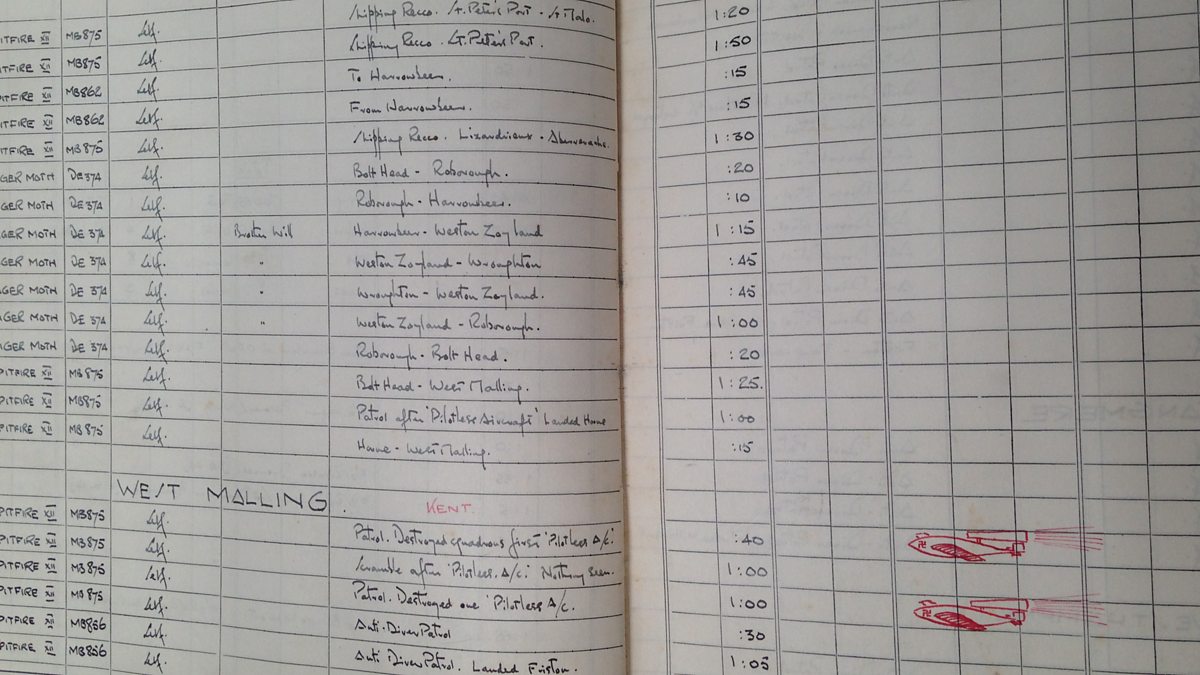 PITFIRE XII MB875 Self. Shipping Recco. St. Peter's Port - St Malo. 1:20
PITFIRE XII MB875 Self. Shipping Recco. St. Peter's Port. 1:50
PITFIRE XII MB862 Self. To Harrowbeer. :15
PITFIRE XII MB862 Self. From Harrowbeer. :15
PITFIRE XII MB875 Self. Shipping Recco. 1:30
GER MOTH DE374 Self. Bolt Head - Roborough. :20
GER MOTH DE374 Self. Roborough - Harrowbeer. :10
GER MOTH DE 374 Self. Brother Will Harrowbeer - Weston Zoyland 1:15
GER MOTH DE 374 Self. " Weston Zoyland - Wroughton :45
GER MOTH DE 374 Self. " Wroughton - Weston Zoyland. :45
GER MOTH DE 374 Self. " Weston Zoyland - Roborough. 1:00
GER MOTH DE 374 Self. Roborough - Bolt Head. :20
PITFIRE XII MB875 Self. Bolt Head - West Malling. 1:25.
PITFIRE XII MB875 Self. Patrol after 'Pilotless Aircraft' Landed Horne 1:00
PITFIRE XII MB875 Self. Horne - West Malling. :15
WEST MALLING. KENT.
PITFIRE XII MB875 Self. Patrol. Destroyed squadrons first 'Pilotless A/c.' :40
PITFIRE XII MB875 Self. Scramble after 'Pilotless. A/c.' Nothing seen. 1:00
PITFIRE XII MB875 Self. Patrol. Destroyed one 'Pilotless A/c. 1:00
PITFIRE XII MB875 Self. Anti-Diver Patrol :30
PITFIRE XII MB856 Self. Anti Diver Patrol. Landed Friston. 1:05
PITFIRE XII MB856 Self.